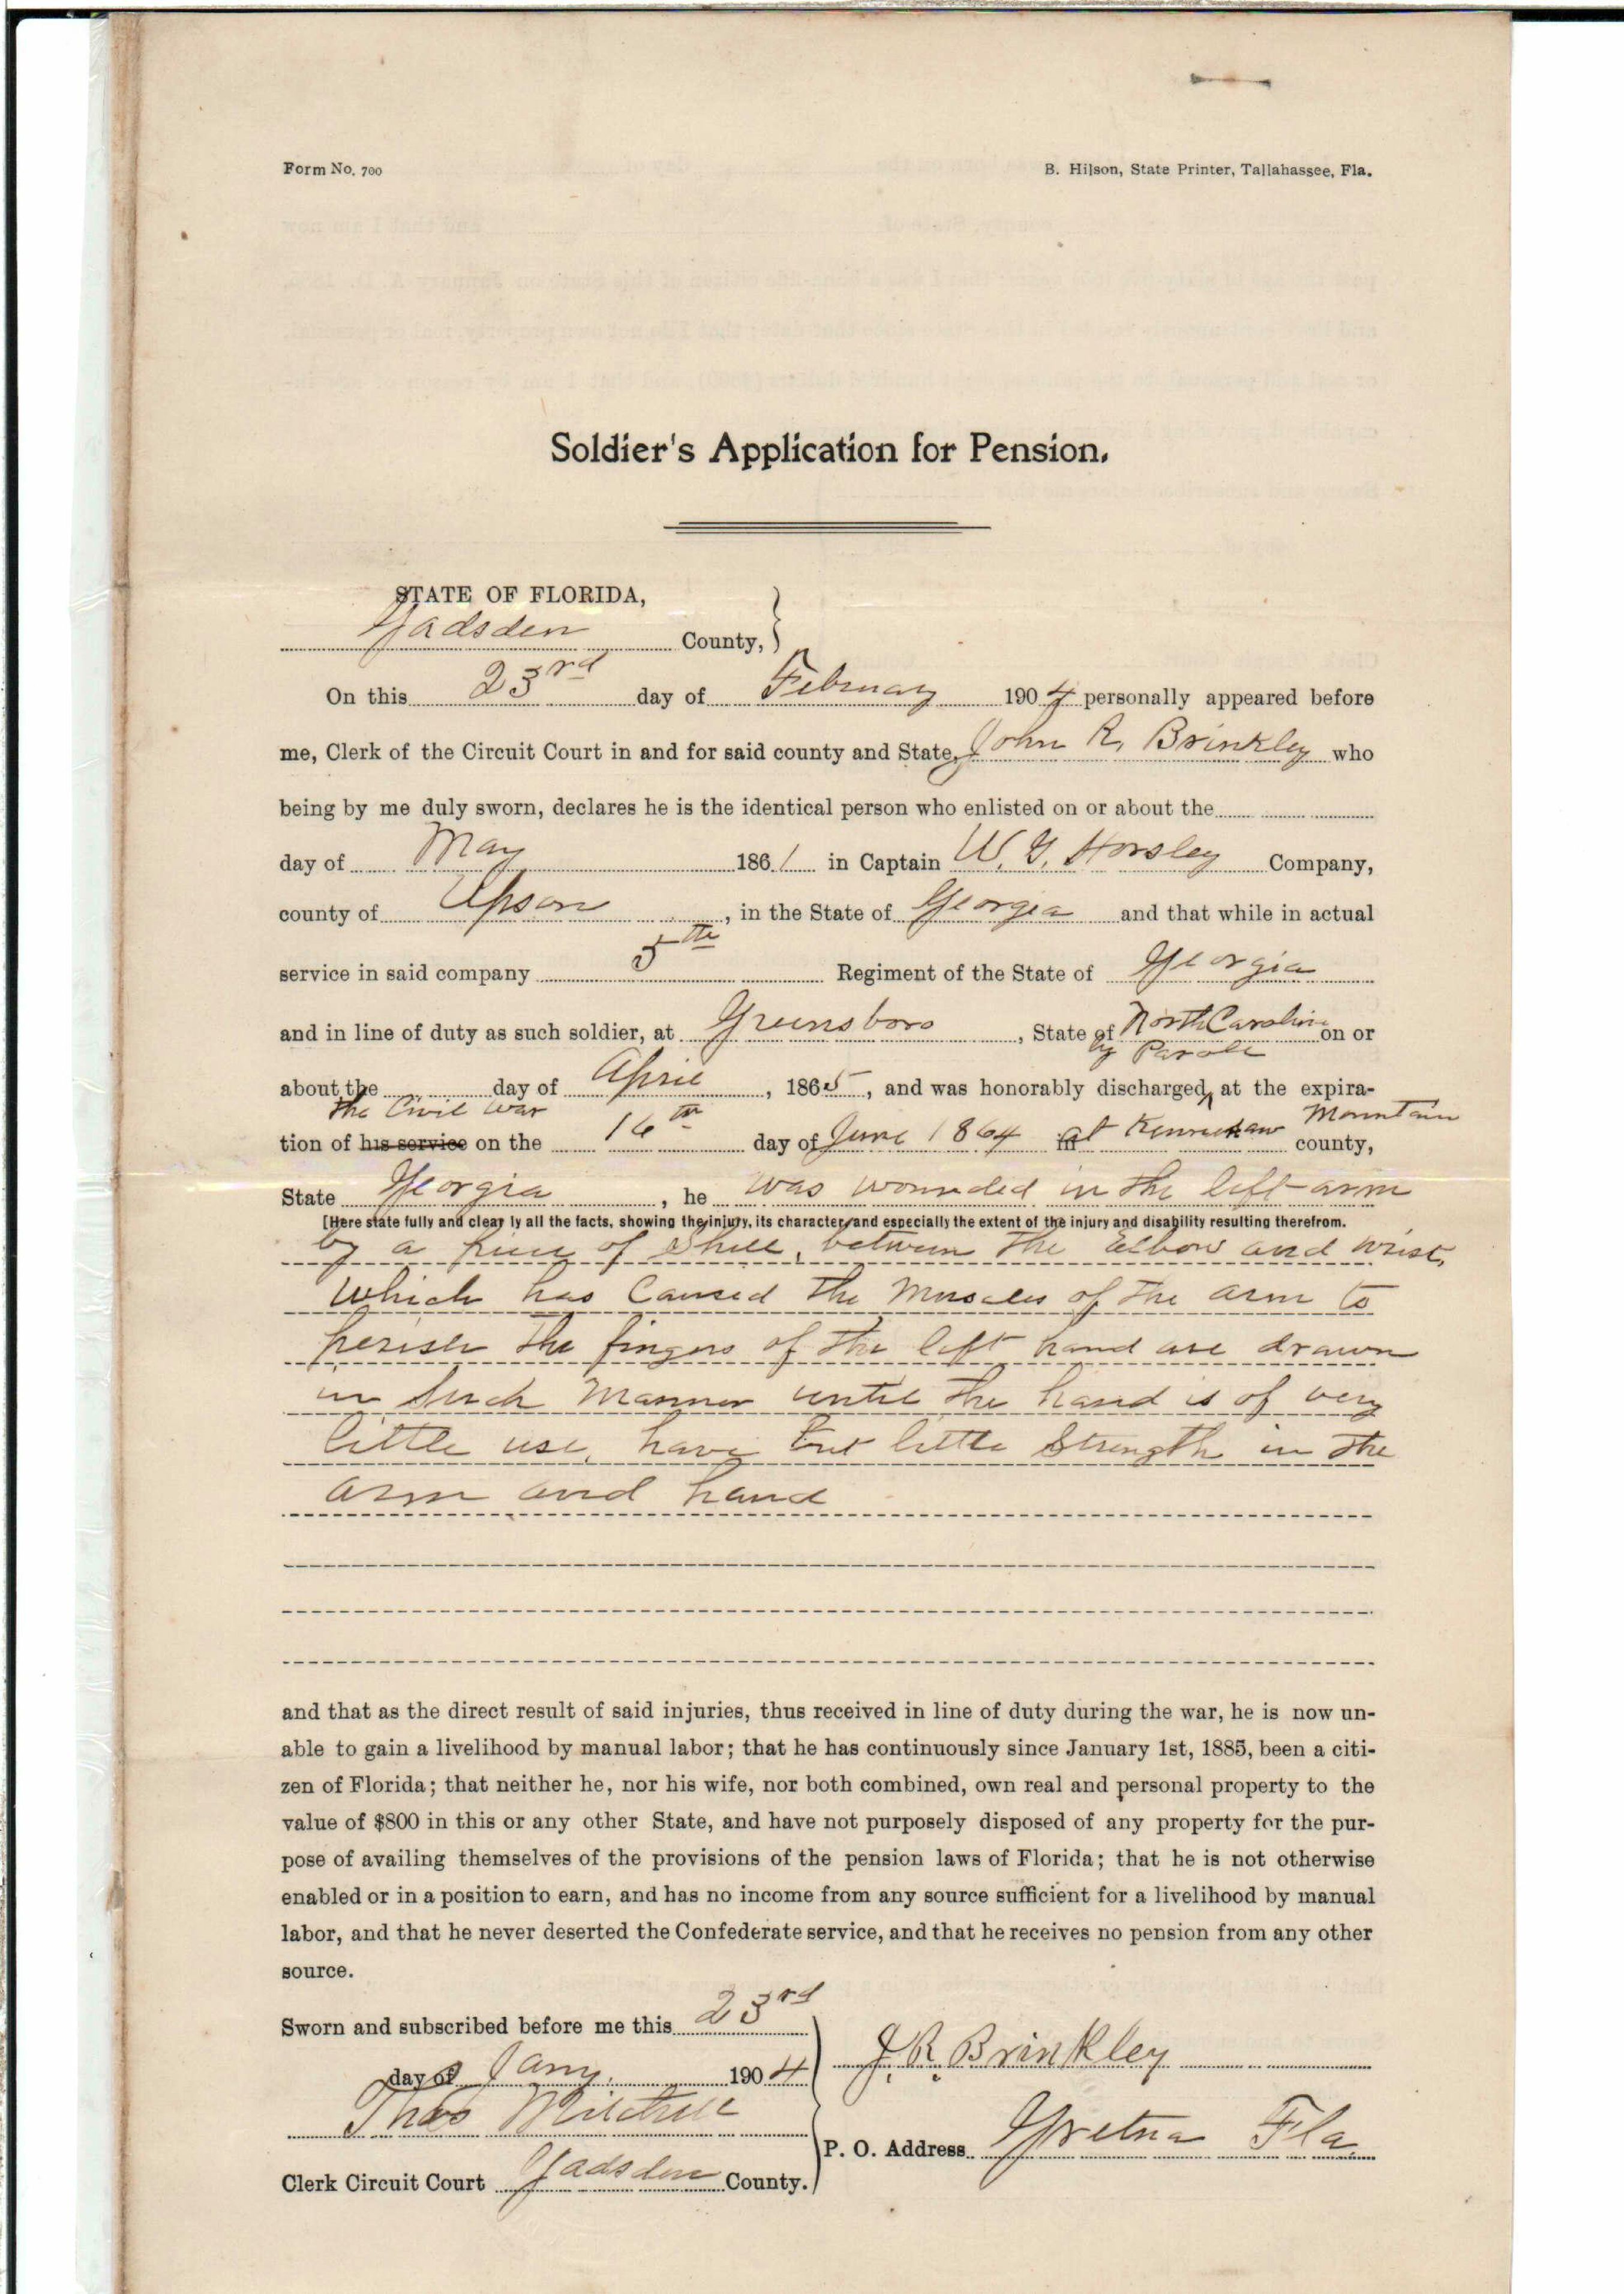 Form No. 700
B. Hilson, State Printer, Tallahassee, Fla.
Soldier's Application for Pension.
STATE OF FLORIDA,
Gadsden County,
On this 23rd day of February 1904 personally appeared before
me, Clerk of the Circuit Court in and for said county and State, John R. Brinkley who
being by me duly sworn, declares he is the identical person who enlisted on or about the
day of May 1861 in Captain W. G. Horsley Company,
county of Upson, in the State of Georgia and that while in actual
service in said company 5th Regiment of the State of Georgia
and in line of duty as such soldier, at Greensboro, State of North Carolina on or
by Parole
about the day of April, 1865, and was honorably discharged, at the expira-
the Civil war
tion of his service on the 16th day of June 1864 at Kennesaw Mountain county,
State Georgia, he was wounded in the left arm
[Here state fully and clearly all the facts, showing the injury, its character, and especially the extent of the injury and disability resulting therefrom.
by a piece of Shell, between the Elbow and wrist,
which has Caused the Muscles of the arm to
perish the fingers of the left hand are drawn
in Such Manner until the hand is of very
little use, have but little Strength in the
arm and hand
and that as the direct result of said injuries, thus received in line of duty during the war, he is now un-
able to gain a livelihood by manual labor; that he has continuously since January 1st, 1885, been a citi-
zen of Florida; that neither he, nor his wife, nor both combined, own real and personal property to the
value of $800 in this or any other State, and have not purposely disposed of any property for the pur-
pose of availing themselves of the provisions of the pension laws of Florida; that he is not otherwise
enabled or in a position to earn, and has no income from any source sufficient for a livelihood by manual
labor, and that he never deserted the Confederate service, and that he receives no pension from any other
source.
Sworn and subscribed before me this 23rd
day of Jany. 1904
J. R. Brinkley
Thos Mitchell
P. O. Address Gretna Fla.
Clerk Circuit Court Gadsden County.